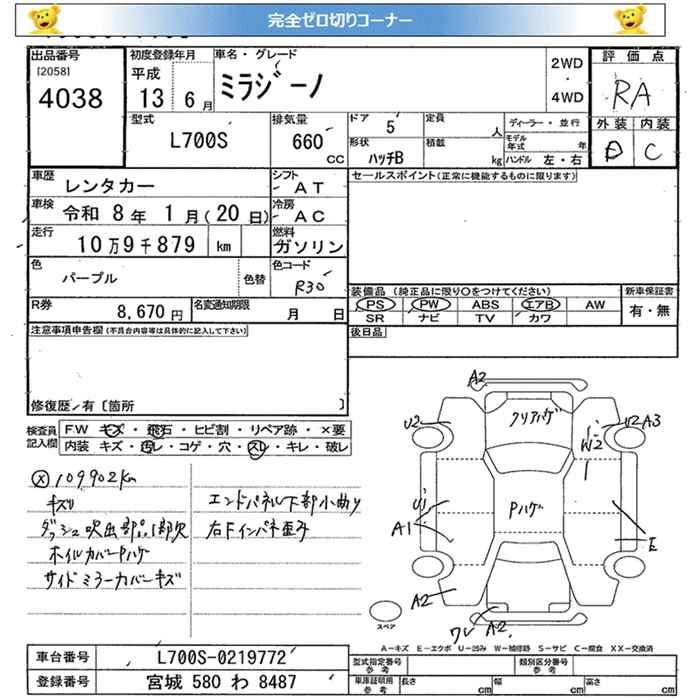 完全ゼロ切りコーナー
出品番号 初度登録年月 車名・グレード 評価点
[2058] 平成 ミラジーノ 2WD
4038 13 6月 ・ RA
4WD
型式 排気量 ドア 5 定員 人 ディーラー・並行 外装 内装
L700S 660 CC 形状 ハッチB 積載 kg モデル年式 年 D C
ハンドル 左・右
車歴 レンタカー シフト AT セールスポイント(正常に機能するものに限ります)
車検 令和 8年 1月(20日) 冷房 AC
走行 10万9千879 km 燃料 ガソリン
色 パープル 色替 色コード R30
装備品 (純正品に限り○をつけてください) 新車保証書
PS PW ABS エアB AW 有・無
SR ナビ TV カワ
R券 8,670円 名変通知期限 月 日
注意事項申告欄(不具合内容等は具体的に記入して下さい) 後日品
修復歴/有〔箇所 〕
検査員記入欄 F.W キズ・飛石・ヒビ割・リペア跡・×要
内装 キズ・汚レ・コゲ・穴・スレ・キレ・破レ
X 109902km
キズリ エンドパネル下部小曲り
ダッシュ吹出部 1部欠 右Fインパネ歪ミ
ホイルカバーPハゲ
サイドミラーカバーキズ
A2
クリアハゲ
U2 W2 U2 A3
Pハゲ
U1
A1 E
A2
ワレ A2
スペア
A-キズ E-エクボ U-凹み W-補修跡 S-サビ C-腐食 XX-交換済
車台番号 L700S-0219772 型式指定番号 参考 類別区分番号 参考
登録番号 宮城 580 わ 8487 車庫証明用 参考 長さ cm 幅 cm 高さ cm